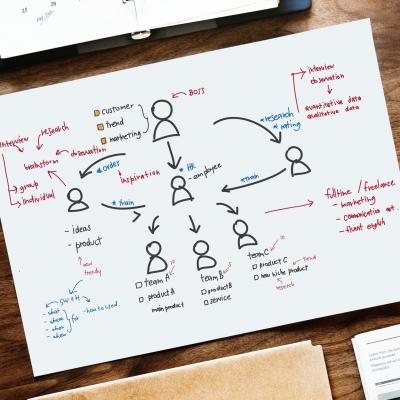 BOSS
customer
trend
marketing
interview
observation
quantitative data
qualitative data
research
rating
interview
research
brainstorm
observation
group
individual
order
inspiration
HR
- employee
train
train
- ideas
- product
new
trendy
fulltime / freelance
- marketing
- communication
- fluent english
team A
product A
main product
team B
product B
service
team C
product C
new niche product
trend
research
5W+H
- what
- where
- when
for
- how to used.